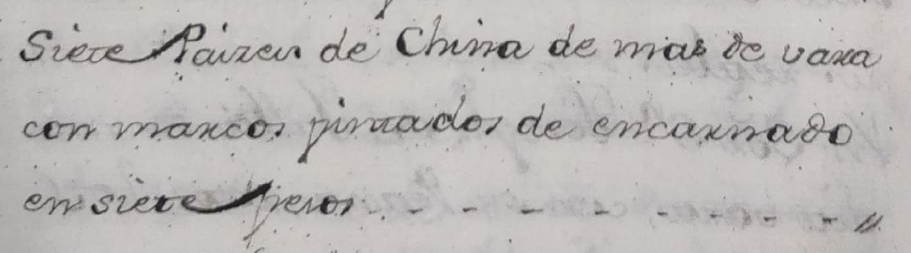 Siete Paizes de China de mas de vara
con marcos pintados de encarnado
en siete pesos - - - - - - - - "